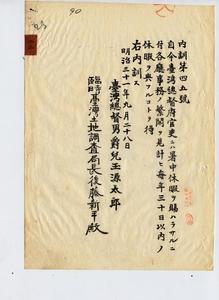 内訓第四五號
自今臺湾總督府官吏ニハ暑中休暇ヲ賜ハラサルニ
付各廳事務ノ繁閑ヲ見計ヒ毎年三十日以内ノ
休暇ヲ與フルコトヲ得
右内訓ス
明治三十一年九月二十八日
臺湾總督男爵兒玉源太郎
臨時臺湾土地調査局長後藤新平殿